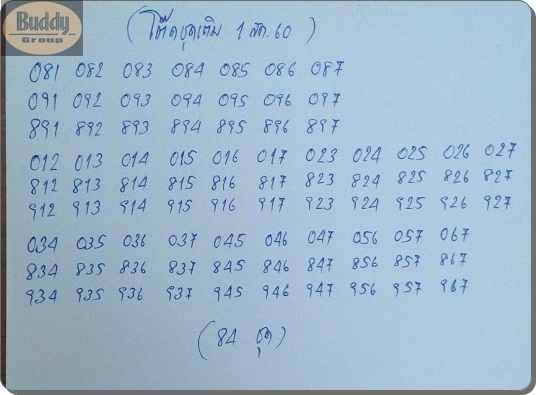 Buddy
Group
(โต๊ดชุดเติม 1 สค. 60)
081 082 083 084 085 086 087
091 092 093 094 095 096 097
891 892 893 894 895 896 897
012 013 014 015 016 017 023 024 025 026 027
812 813 814 815 816 817 823 824 825 826 827
912 913 914 915 916 917 923 924 925 926 927
034 035 036 037 045 046 047 056 057 067
834 835 836 837 845 846 847 856 857 867
934 935 936 937 945 946 947 956 957 967
(84 ชุด)